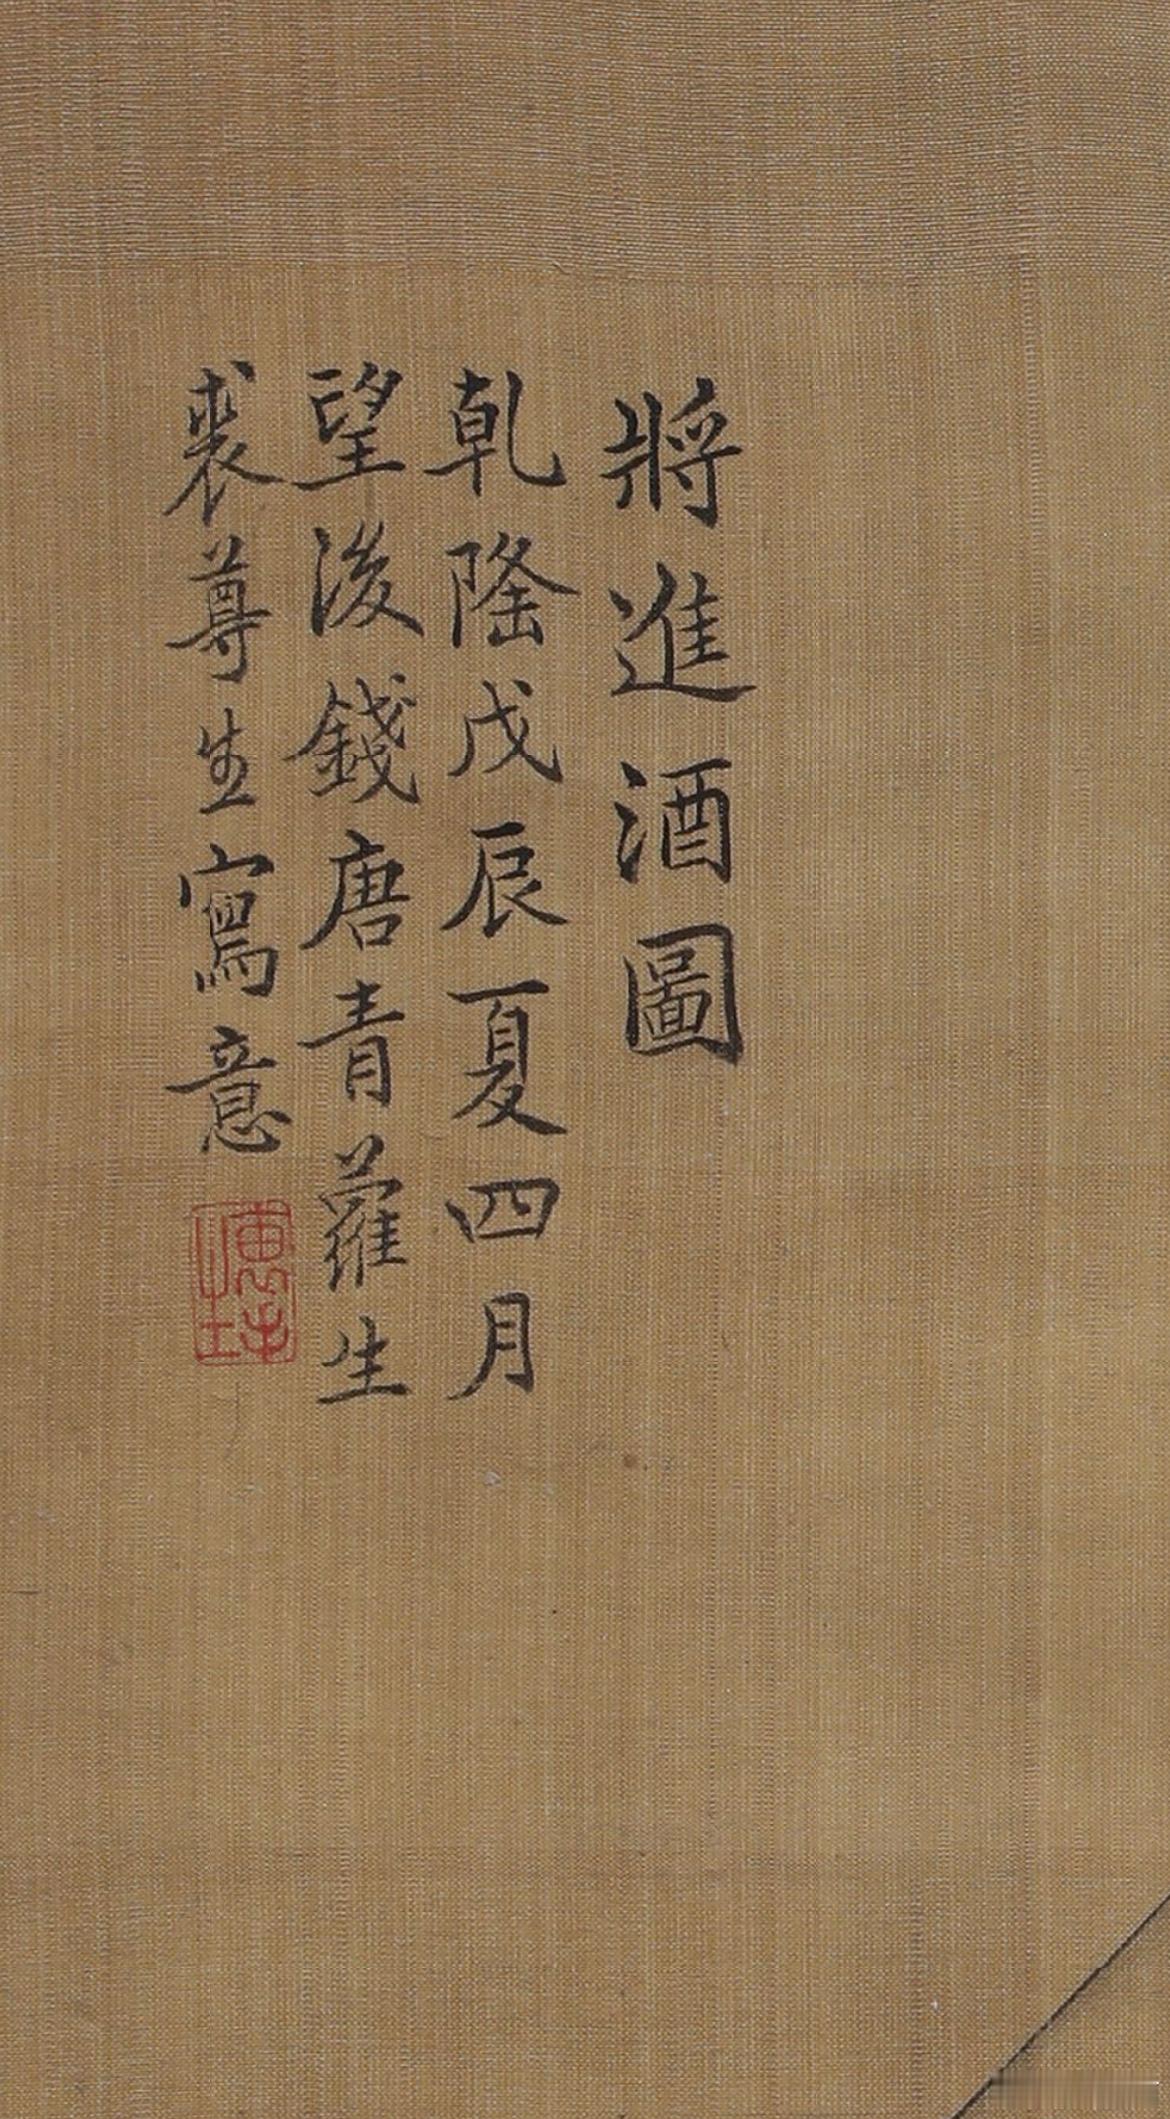 將進酒圖
乾隆戊辰夏四月
望後錢唐青蘿生
裘尊生寫意